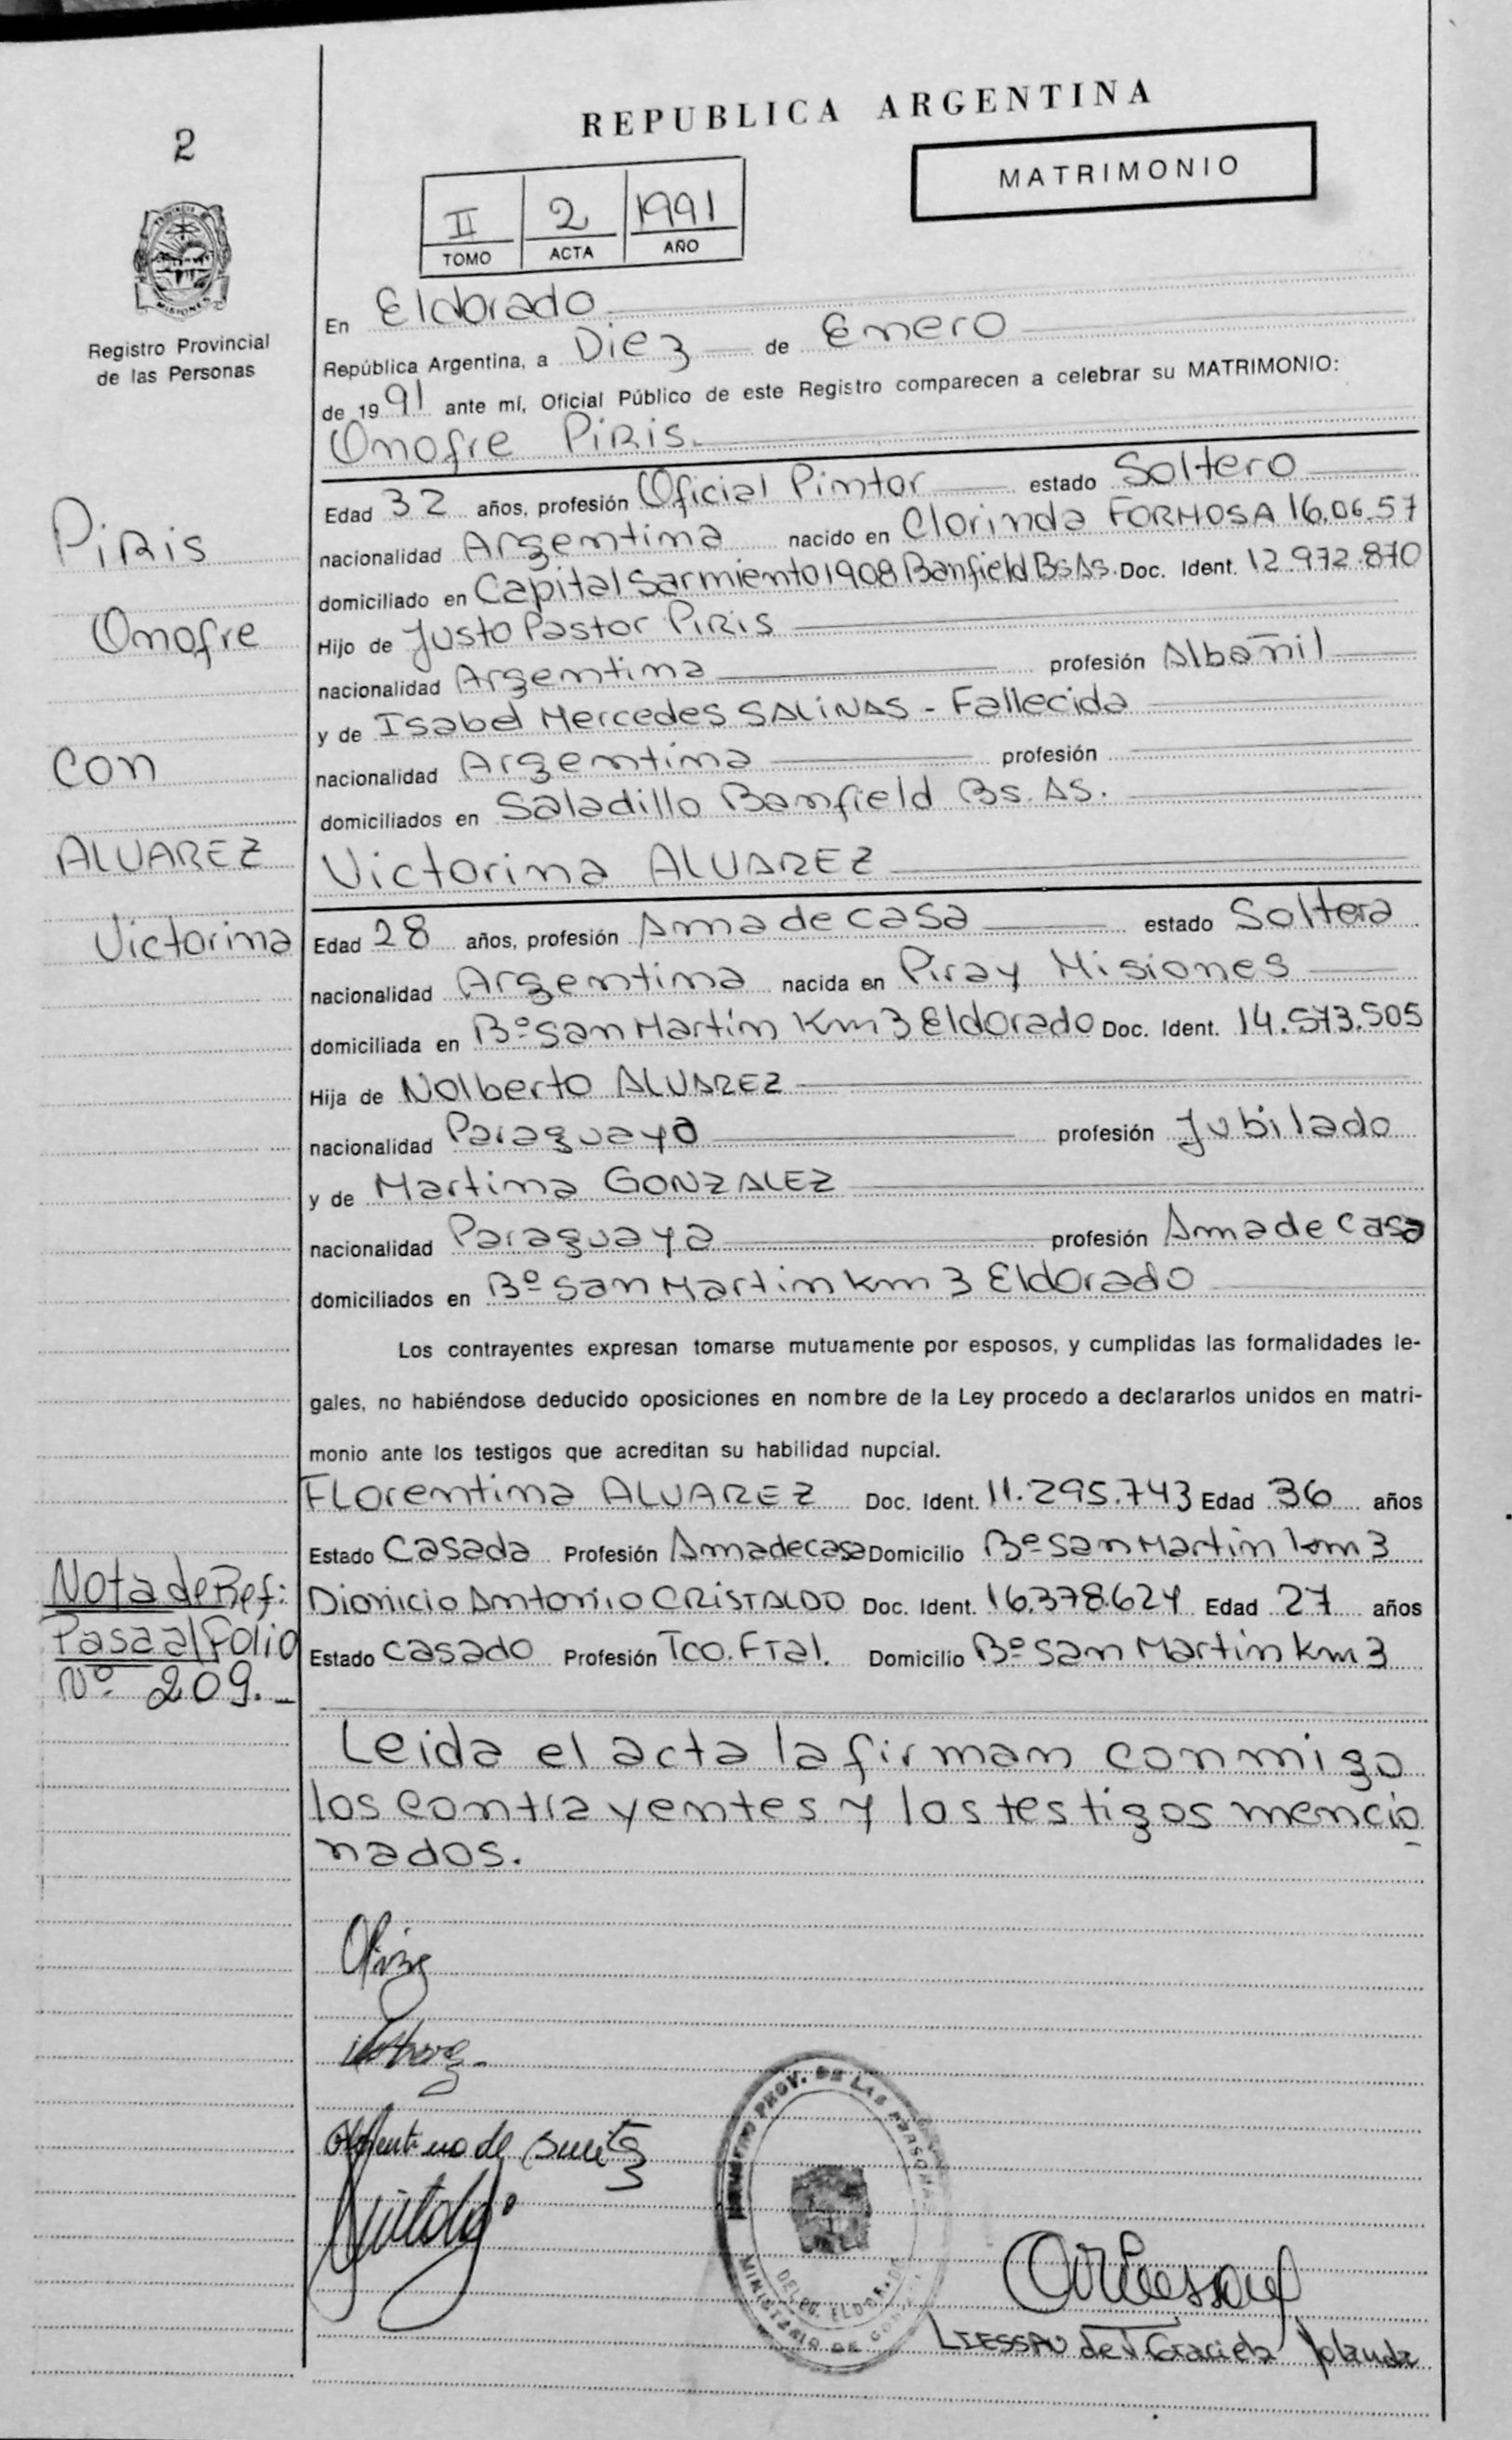 REPUBLICA ARGENTINA
2
MATRIMONIO
II 2 1991
TOMO ACTA AÑO
MISIONES
Registro Provincial
de las Personas
En Eldorado
República Argentina, a Diez de Enero
de 1991 ante mí, Oficial Público de este Registro comparecen a celebrar su MATRIMONIO:
Onofre PIRIS.
Edad 32 años, profesión Oficial Pintor estado Soltero
nacionalidad Argentina nacido en Clorinda FORMOSA 16.06.57
domiciliado en Capital Sarmiento 1908 Banfield Bs As. Doc. Ident. 12.972.870
Hijo de Justo Pastor PIRIS
nacionalidad Argentina profesión Albañil
y de Isabel Mercedes SALINAS - Fallecida
nacionalidad Argentina profesión
domiciliados en Saladillo Banfield Bs. As.
Victorina ALVAREZ
Edad 28 años, profesión Ama de casa estado Soltera
nacionalidad Argentina nacida en Piray Misiones
domiciliada en Bº San Martín Km 3 Eldorado Doc. Ident. 14.573.505
Hija de Nolberto ALVAREZ
nacionalidad Paraguayo profesión Jubilado
y de Martina GONZALEZ
nacionalidad Paraguaya profesión Ama de casa
domiciliados en Bº San Martin Km 3 Eldorado
Los contrayentes expresan tomarse mutuamente por esposos, y cumplidas las formalidades le-
gales, no habiéndose deducido oposiciones en nombre de la Ley procedo a declararlos unidos en matri-
monio ante los testigos que acreditan su habilidad nupcial.
Florentina ALVAREZ Doc. Ident. 11.295.743 Edad 36 años
Estado Casada Profesión Ama de casa Domicilio Bº San Martin km 3
Dionicio Antonio CRISTALDO Doc. Ident. 16.378.624 Edad 27 años
Estado Casado Profesión Tco. Ftal. Domicilio Bº San Martín Km 3
Leida el acta la firman conmigo
los contrayentes y los testigos mencio
nados.
PIRIS
Onofre
con
ALVAREZ
Victorina
Nota de Ref:
Pasa al Folio
Nº 209.-
PROV. DE LAS PERSONAS
DELEG. ELDORADO
MINISTERIO DE
LIESSAU de T. Graciela Yolanda